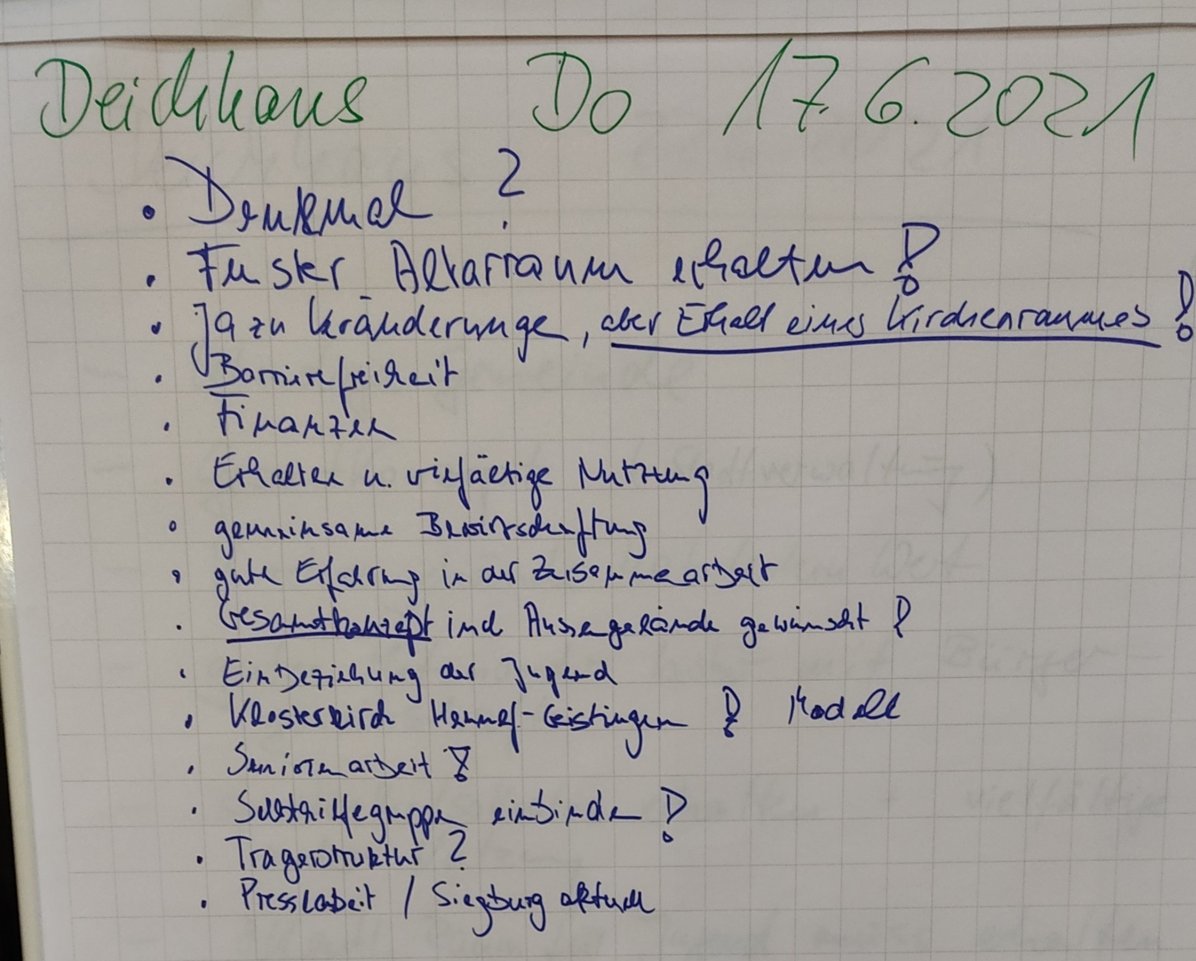 Deichhaus Do 17.6.2021
• Denkmal ?
• Fenster Altarraum erhalten !
• Ja zu Veränderunge, aber Erhalt eines Kirchenraumes !
• Barrierefreiheit
• Finanzen
• Erhalten u. vielfältige Nutzung
• gemeinsame Bewirtschaftung
• gute Erfahrung in der Zusammenarbeit
• Gesamtkonzept incl Aussengelände gewünscht !
• Einbeziehung der Jugend
• Klosterkirch Hennef-Geistingen ! Modell
• Seniorenarbeit !
• Selbsthilfegruppen einbinden !
• Trägerstruktur ?
• Pressearbeit / Siegburg aktuell